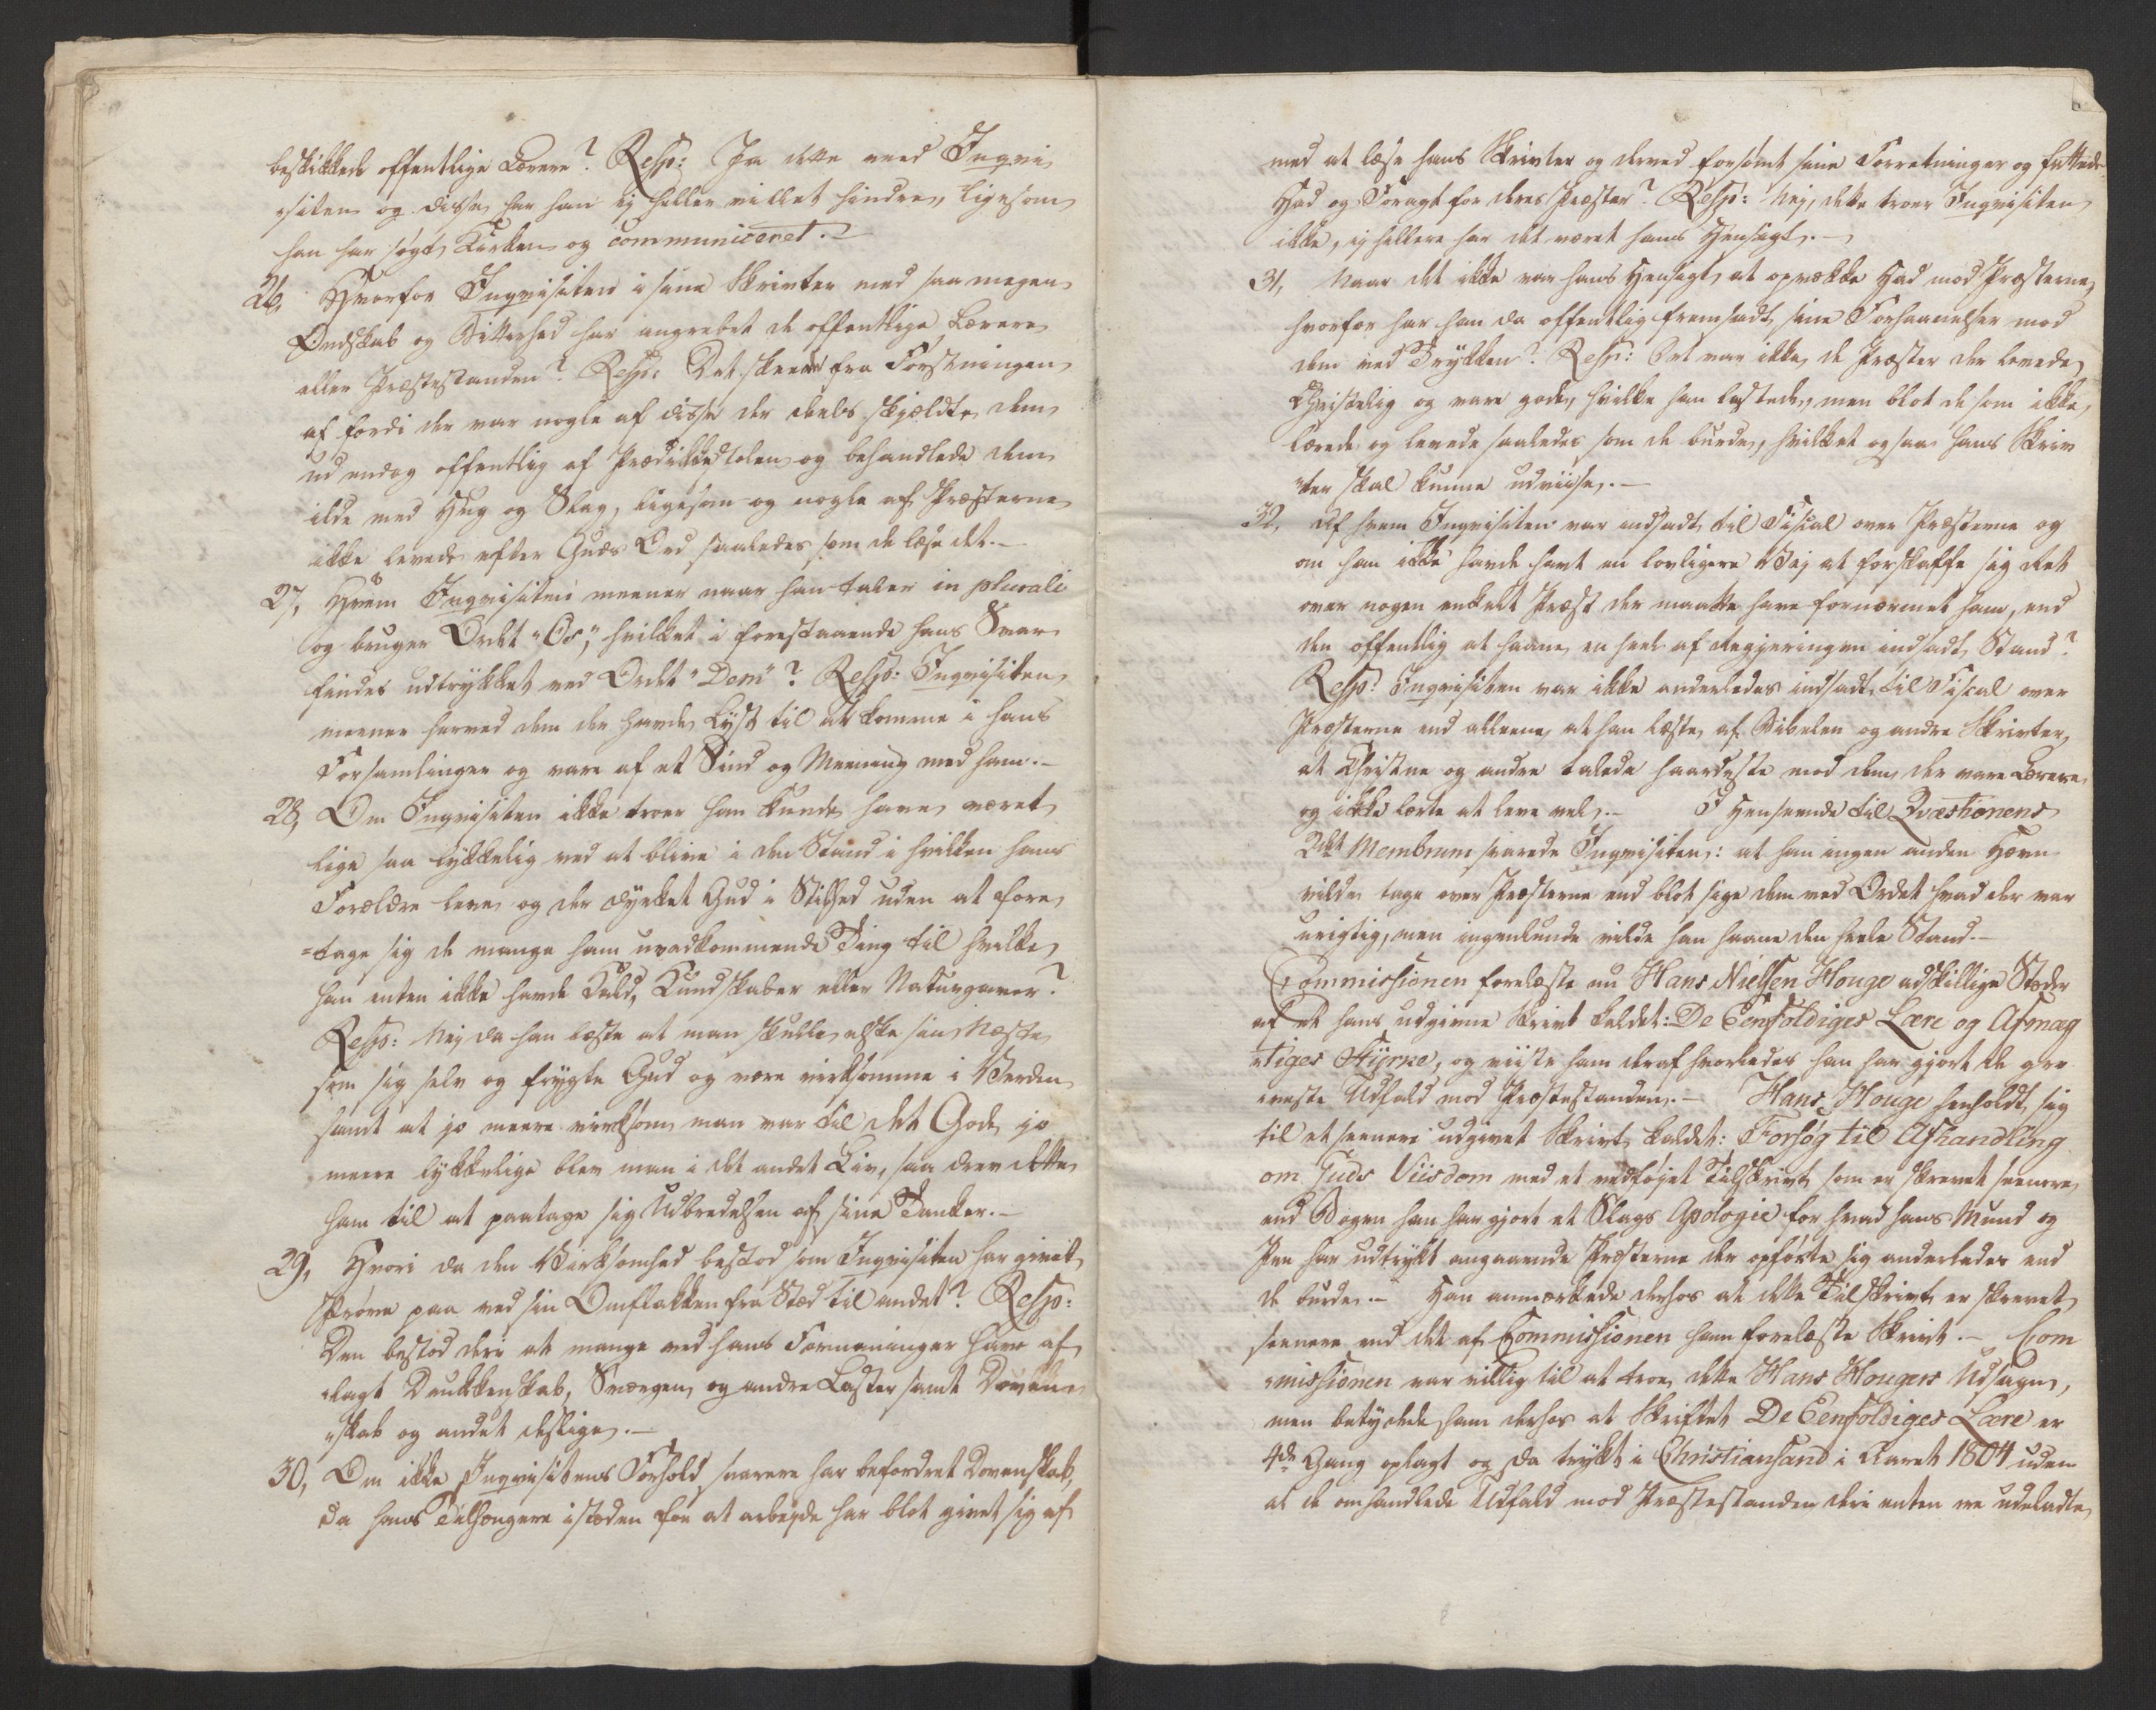 beskikkede offentlige Lærere? Resp: Ja dette med Inqvi
-siten og disse har han ej heller villet hindre, ligesom
han har søgt Kirken og communiceret.-
26, Hvorfor Inqvisiten i sine Skrivter med saa megen
Ondskab og Bitterhed har angrebet de offentlige Lærere
eller Præstestanden? Resp: Det skeede fra Førstningen
af fordi der var nogle af disse der deels skjældte dem
ud endog offentlig af Prædikestolen og behandlede dem
ilde med Hug og Slag, ligesom og nogle af Præsterne
ikke levede efter Guds Ord saaledes som de læse det.-
27, Hvem Inqvisiten meener naar han taler in plurali
og bruger Ordet "Os", hvilket i forestaaende hans Svar
findes udtrykket ved Ordet "Dem"? Resp: Inqvisiten
meener herved dem der havde Lyst til at komme i hans
Forsamlinger og vare af et Sind og Meening med ham.-
28, Om Inqvisiten ikke troer han kunde have været
lige saa lykkelig ved at blive i den Stand i hvilken hans
Forældre leve og der dyrket Gud i Stilhed uden at fore
=tage sig de mange ham uvedkommende Ting til hvilke
han enten ikke havde Kald, Kundskaber eller Naturgaver?
Resp: Nej da han læste at man skulle elske sin Næste
som sig selv og frygte Gud og være virksomme i Verden
samt at jo meere virksom man var til det Gode jo
meere lykkelige blev man i det andet Liv, saa drev dette
ham til at paatage sig Udbredelsen af sine Tanker.-
29, Hvori da den Virksomhed bestod som Inqvisiten har givet
Prøve paa ved sin Omflakken fra Stæd til andet? Resp:
Den bestod deri at mange ved hans Formaninger have af
-lagt Drukkenskab, Sværgen og andre Laster samt Doven
-skab og andet deslige.-
30, Om ikke Inqvisitens Forhold snarere har befordret Dovenskab,
da hans Tilhængere istæden for at arbejde har blot givet sig af
med at læse hans Skrivter og derved forsømt sine Forretninger og fattede
Had og Foragt for deres Præster? Resp: Nej, dette troer Inqvisiten
ikke, ej hellere har det været hans Hensigt.-
31, Naar det ikke var hans Hensigt at opvække Had mod Præsterne
hvorfor har han da offentlig fremsadt sine Forhaanelser mod
dem ved Trykken? Resp: Det var ikke de Præster der levede
Christelig og vare gode, hvilke han lastede, men blot de som ikke
lærede og levede saaledes som de burde, hvilket ogsaa hans Skriv
"ter skal kunne udviise.-
32, Af hvem Inqvisiten var indsadt til Fiscal over Præsterne og
om han ikke havde havt en lovligere Vej at forskaffe sig Ret
over nogen enkelt Præst der maatte have fornærmet ham, end
den offentlig at haane en heel af Regjeringen indsadt Stand?
Resp: Inqvisiten var ikke anderledes indsadt til Fiscal over
Præsterne end alleene at han læste af Bibelen og andre Skrivter,
at Christne og andre talede haardeste mod dem der vare Lærere
og ikke lærte at leve vel.- I Henseende til Qvæstionens
2det Membrum svarede Inqvisiten: at han ingen anden Hævn
vilde tage over Præsterne end blot sige dem med Ordet hvad der var
urigtig, men ingenlunde vilde han haane den heele Stand.-
Commissionen forelæste nu Hans Nielsen Houge adskillige Stæder
af et hans udgivne Skrivt kaldet: De Eenfoldiges Lære og Afmæg
-tiges Styrke, og viiste ham deraf hvorledes han har gjort de gro
-veste Udfald mod Præstestanden.- Hans Houge henholdt sig
til et seenere udgivet Skrivt kaldet: Forsøg til Afhandling
om Guds Viisdom med et vedføjet Tilskrivt som er skrevet seenere
end Bogen han har gjort et Slags Apologie for hvad hans Mund og
Pen har udtrykt angaaende Præsterne der opførte sig anderledes end
de burde.- Han anmærkede derhos at dette Tilskrivt er skrevet
seenere end det af Commissionen ham forelæste Skrivt.- Com
-missionen var villig til at troe dette Hans Houges Udsagn,
men betydede ham derhos at Skriftet De Eenfoldiges Lære er
4de Gang oplagt og da trykt i Christiansand i Aaret 1804 uden
at de omhandlede Udfald mod Præstestanden deri enten ere udeladte